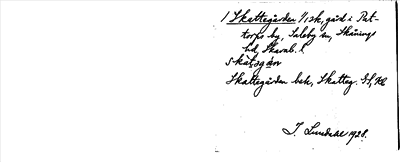 1 Skattegården 1/1 sk, gård i Put-
torps by, Saleby sn, Skånings
hd, Skarab. l.
skatsgårn
Skattegården bek, Skatteg.
J. Lundahl 1928.